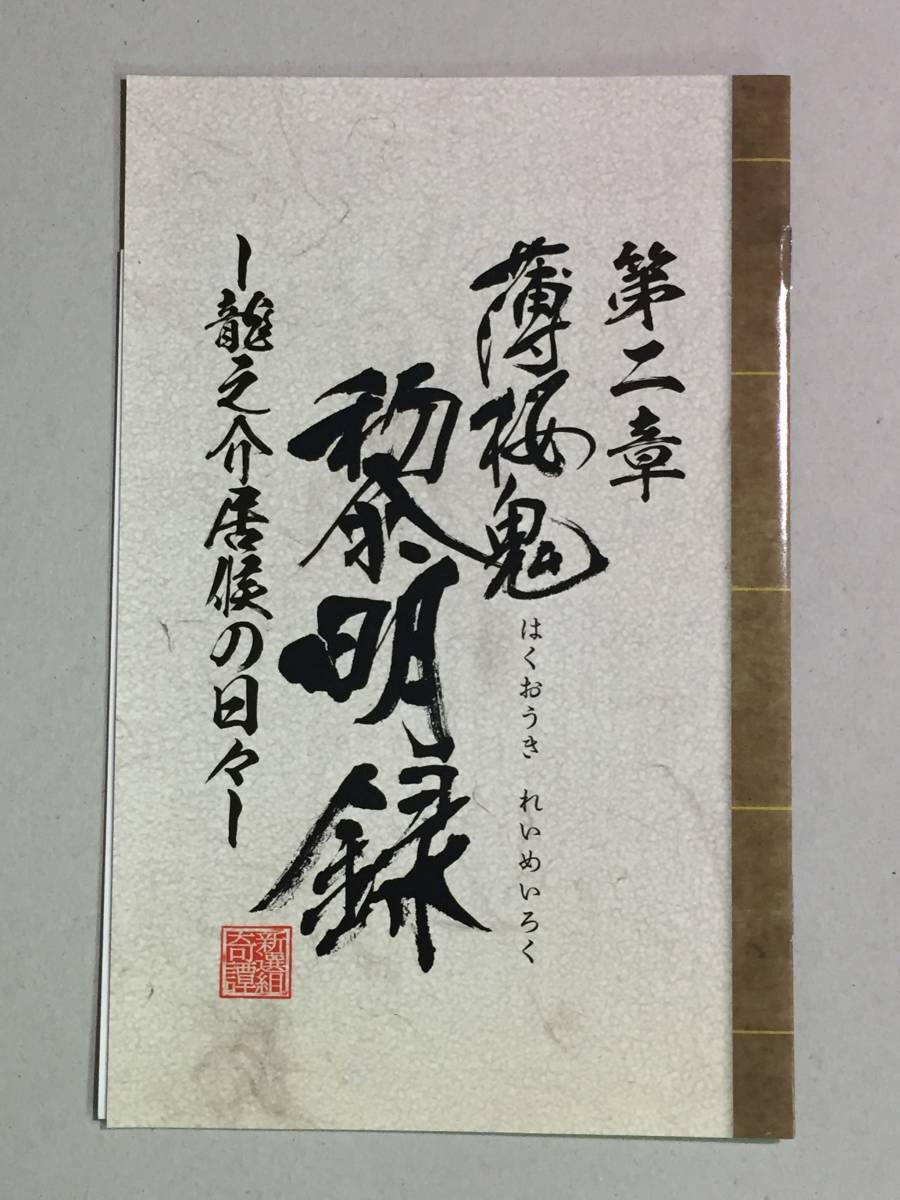 第二章
薄桜鬼
はくおうき　れいめいろく
黎明録
ー龍之介居候の日々ー
新選組
奇譚